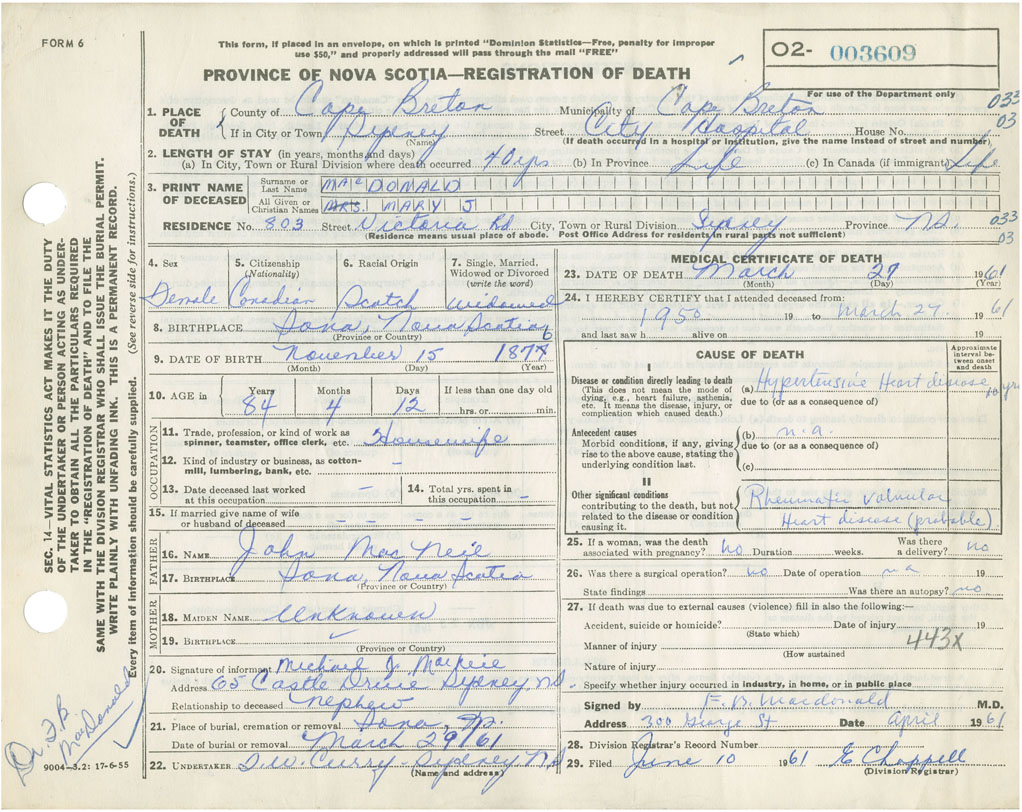 FORM 6
This form, if placed in an envelope, on which is printed "Dominion Statistics—Free, penalty for improper
use $50," and properly addressed will pass through the mail "FREE"
O2- 003609
For use of the Department only
PROVINCE OF NOVA SCOTIA—REGISTRATION OF DEATH
1. PLACE OF DEATH County of Cape Breton Municipality of Cape Breton 033
If in City or Town Sydney Street City Hospital House No. 03
(Name) (If death occurred in a hospital or institution, give the name instead of street and number)
2. LENGTH OF STAY (in years, months and days)
(a) In City, Town or Rural Division where death occurred 40 yrs (b) In Province Life (c) In Canada (if immigrant) Life
3. PRINT NAME OF DECEASED Surname or Last Name MacDONALD
All Given or Christian Names MRS. MARY J
RESIDENCE No. 803 Street Victoria Rd City, Town or Rural Division Sydney Province N.S. 033
(Residence means usual place of abode. Post Office Address for residents in rural parts not sufficient) 03
4. Sex 5. Citizenship (Nationality) 6. Racial Origin 7. Single, Married, Widowed or Divorced (write the word)
Female Canadian Scotch Widowed
8. BIRTHPLACE Iona, Nova Scotia
(Province or Country)
9. DATE OF BIRTH November 15 187
(Month) (Day) (Year)
10. AGE in Years Months Days If less than one day old
84 4 12 hrs. or min.
OCCUPATION
11. Trade, profession, or kind of work as
spinner, teamster, office clerk, etc. Housewife
12. Kind of industry or business, as cotton-
mill, lumbering, bank, etc. -
13. Date deceased last worked at this occupation - 14. Total yrs. spent in this occupation -
15. If married give name of wife
or husband of deceased - - - -
FATHER
16. NAME John MacNeil
17. BIRTHPLACE Iona, Nova Scotia
(Province or Country)
MOTHER
18. MAIDEN NAME Unknown
19. BIRTHPLACE
(Province or Country)
20. Signature of informant Michael J. MacNeil
Address 65 Castle Drive Sydney, N.S.
Relationship to deceased nephew
21. Place of burial, cremation or removal Iona,
Date of burial or removal March 29/61
22. UNDERTAKER T.W. Curry - Sydney, N.S
(Name and address)
MEDICAL CERTIFICATE OF DEATH
23. DATE OF DEATH March 27 1961
(Month) (Day) (Year)
24. I HEREBY CERTIFY that I attended deceased from:
1950 19 to March 27. 1961
and last saw h alive on 19
CAUSE OF DEATH
Approximate interval between onset and death
I
Disease or condition directly leading to death (a) Hypertensive Heart disease 10 yrs
(This does not mean the mode of due to (or as a consequence of)
dying, e.g., heart failure, asthenia,
etc. It means the disease, injury, or
complication which caused death.)
Antecedent causes (b) n.a.
Morbid conditions, if any, giving due to (or as a consequence of)
rise to the above cause, stating the
underlying condition last. (c)
II
Other significant conditions Rheumatic valvular
contributing to the death, but not
related to the disease or condition Heart disease (probable)
causing it.
25. If a woman, was the death Was there
associated with pregnancy? no Duration weeks. a delivery? no
26. Was there a surgical operation? no Date of operation na 19
State findings Was there an autopsy? no
27. If death was due to external causes (violence) fill in also the following:—
Accident, suicide or homicide? Date of injury 19
(State which)
Manner of injury 443X
(How sustained
Nature of injury
Specify whether injury occurred in industry, in home, or in public place
Signed by F. B. Macdonald M.D.
Address 300 George St Date April 1961
28. Division Registrar's Record Number
29. Filed June 10 1961 E Chappell
(Division Registrar)
SEC. 14—VITAL STATISTICS ACT MAKES IT THE DUTY
OF THE UNDERTAKER OR PERSON ACTING AS UNDER-
TAKER TO OBTAIN ALL THE PARTICULARS REQUIRED
IN THE "REGISTRATION OF DEATH" AND TO FILE THE
SAME WITH THE DIVISION REGISTRAR WHO SHALL ISSUE THE BURIAL PERMIT.
WRITE PLAINLY WITH UNFADING INK. THIS IS A PERMANENT RECORD.
Every item of information should be carefully supplied. (See reverse side for instructions.)
Dr. F B
MacDonald
9004-3.2: 17-6-55